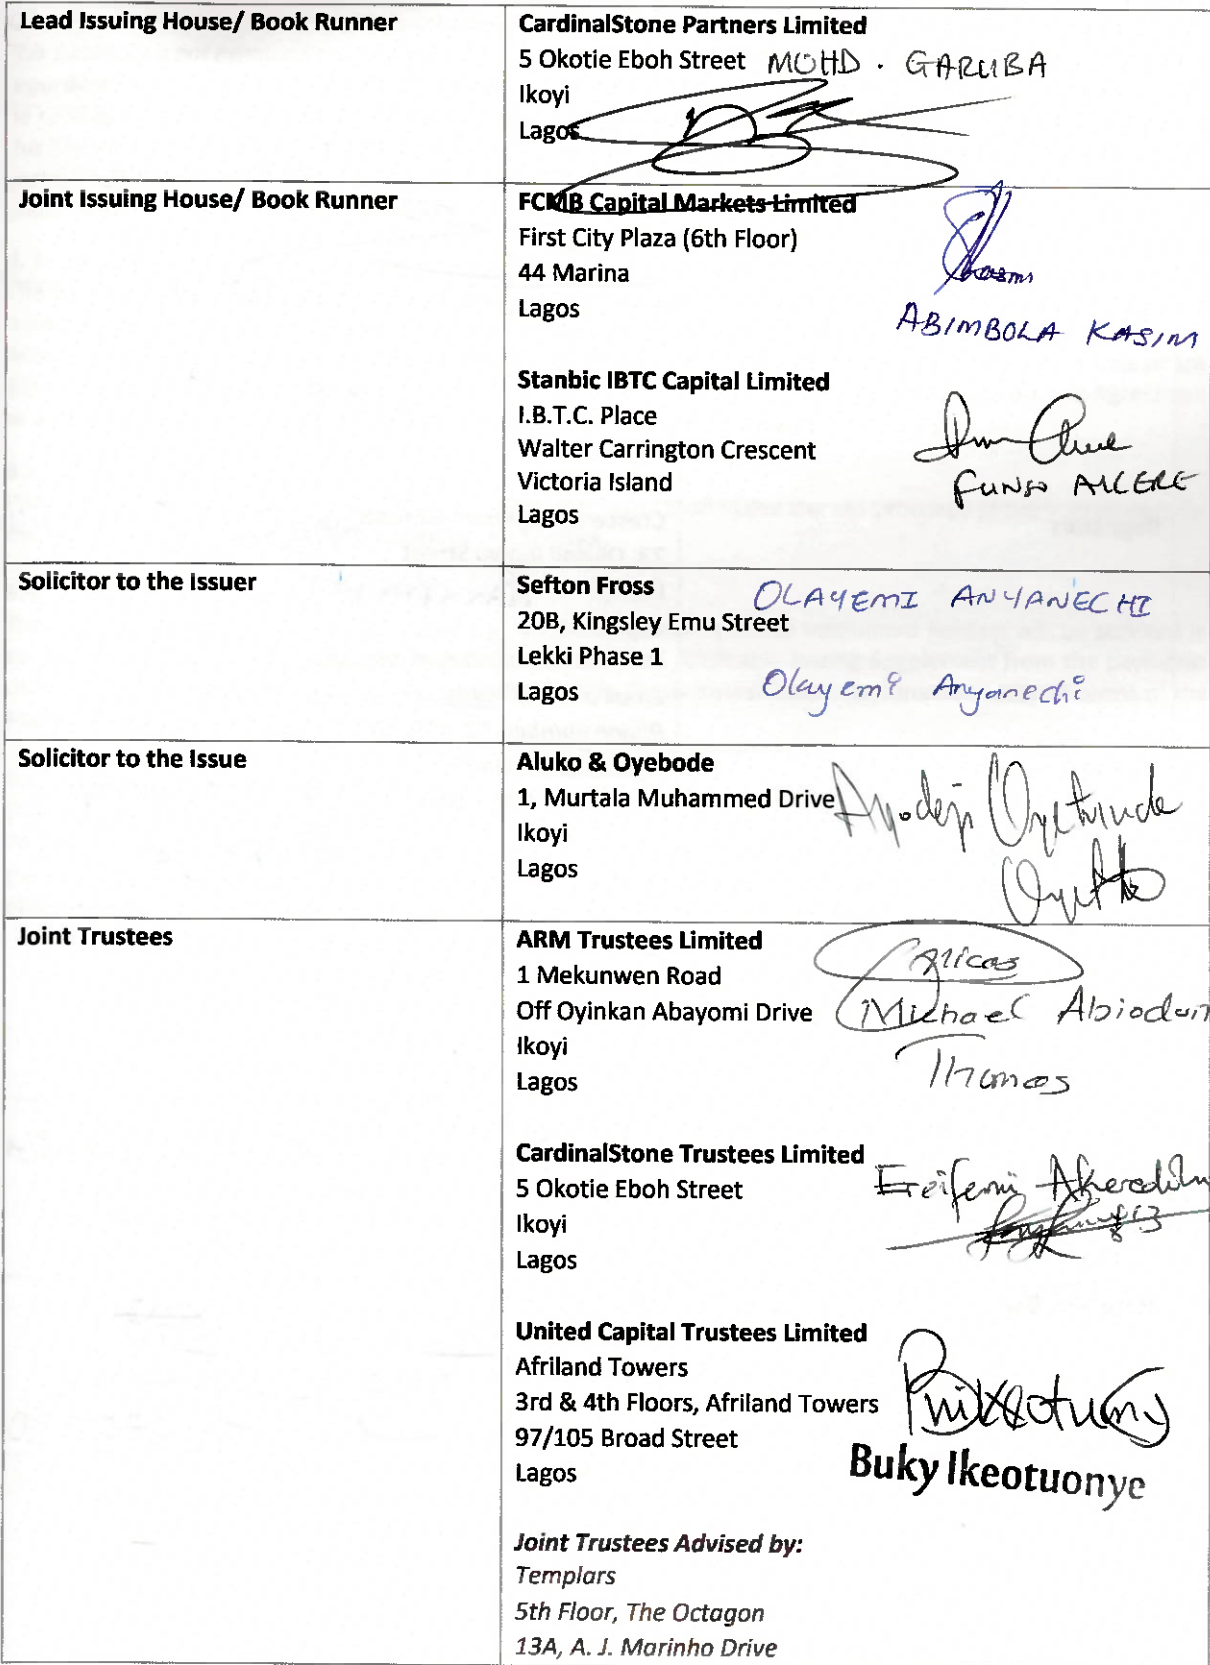 Lead Issuing House/ Book Runner
CardinalStone Partners Limited
5 Okotie Eboh Street MOHD. GARUBA
Ikoyi
Lagos
Joint Issuing House/ Book Runner
FCMB Capital Markets Limited
First City Plaza (6th Floor)
44 Marina
Lagos
ABIMBOLA KASIM
Stanbic IBTC Capital Limited
I.B.T.C. Place
Walter Carrington Crescent
Victoria Island
FUNSO AKERE
Lagos
Solicitor to the Issuer
Sefton Fross
OLAYEMI ANYANECHI
20B, Kingsley Emu Street
Lekki Phase 1
Lagos
Olayemi Anyanechi
Solicitor to the Issue
Aluko & Oyebode
1, Murtala Muhammed Drive
Ayodeji Oyetunde
Ikoyi
Lagos
Joint Trustees
ARM Trustees Limited
1 Mekunwen Road
Off Oyinkan Abayomi Drive
Michael Abiodun
Ikoyi
Thomas
Lagos
CardinalStone Trustees Limited
5 Okotie Eboh Street
Ikoyi
Lagos
United Capital Trustees Limited
Afriland Towers
3rd & 4th Floors, Afriland Towers
97/105 Broad Street
Lagos
Buky Ikeotuonye
Joint Trustees Advised by:
Templars
5th Floor, The Octagon
13A, A. J. Marinho Drive